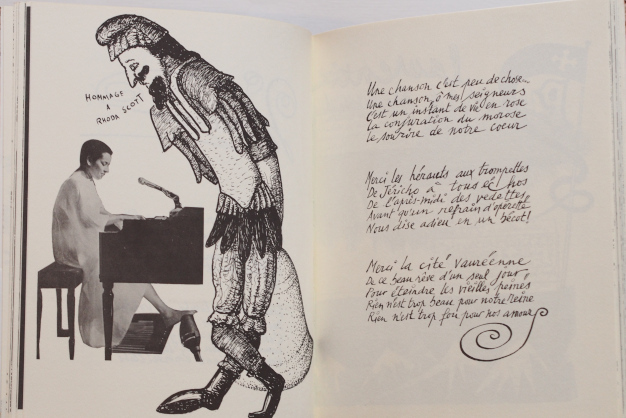 HOMMAGE
A
RHODA SCOTT
Une chanson c'est peu de chose
Une chanson ô mes seigneurs
C'est un instant de vie en rose
La conjuration du morose
Le sourire de notre cœur
Merci les hérauts aux trompettes
De Jéricho à tous et nos
De l'après-midi des vedettes
Avant qu'un refrain d'opérette
Nous dise adieu en un bécot!
Merci la cité Vauréenne
De ce beau rêve d'un seul jour
Pour éteindre les vieilles peines
Rien n'est trop beau pour notre Reine
Rien n'est trop fou pour nos amours